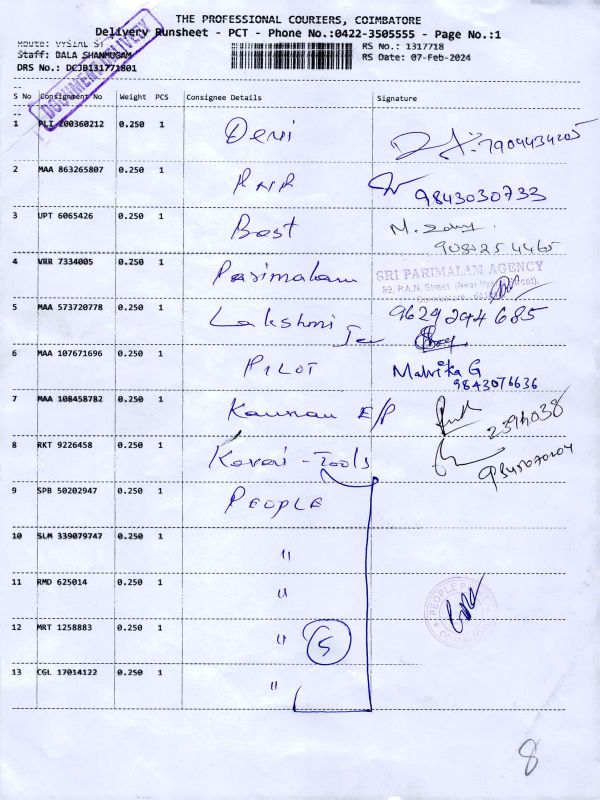 THE PROFESSIONAL COURIERS, COIMBATORE
Delivery Runsheet - PCT - Phone No.:0422-3505555 - Page No.:1
Route: VYSIAL ST RS No.: 1317718
Staff: BALA SHANMUGAM RS Date: 07-Feb-2024
DRS No.: DCJB131771801
DOCUMENT DELIVERY
S No Consignment No Weight PCS Consignee Details Signature
1 PLI 200360212 0.250 1 Devi 7904434205
2 MAA 863265807 0.250 1 RNR 9843030733
3 UPT 6065426 0.250 1 Bost M.
4 VRR 7334005 0.250 1 Parimalam SRI PARIMALAM AGENCY
89, P.A.N. Street
5 MAA 573720778 0.250 1 Lakshmi 9629294685
6 MAA 107671696 0.250 1 PILOT Malvika G
9843076636
7 MAA 108458782 0.250 1 Kannan E/P 2394038
8 RKT 9226458 0.250 1 Kovai - Tools
9 SPB 50202947 0.250 1 PEOPLE
10 SLM 339079747 0.250 1 "
11 RMD 625014 0.250 1 "
12 MRT 1258883 0.250 1 " 5
13 CGL 17014122 0.250 1 "
8